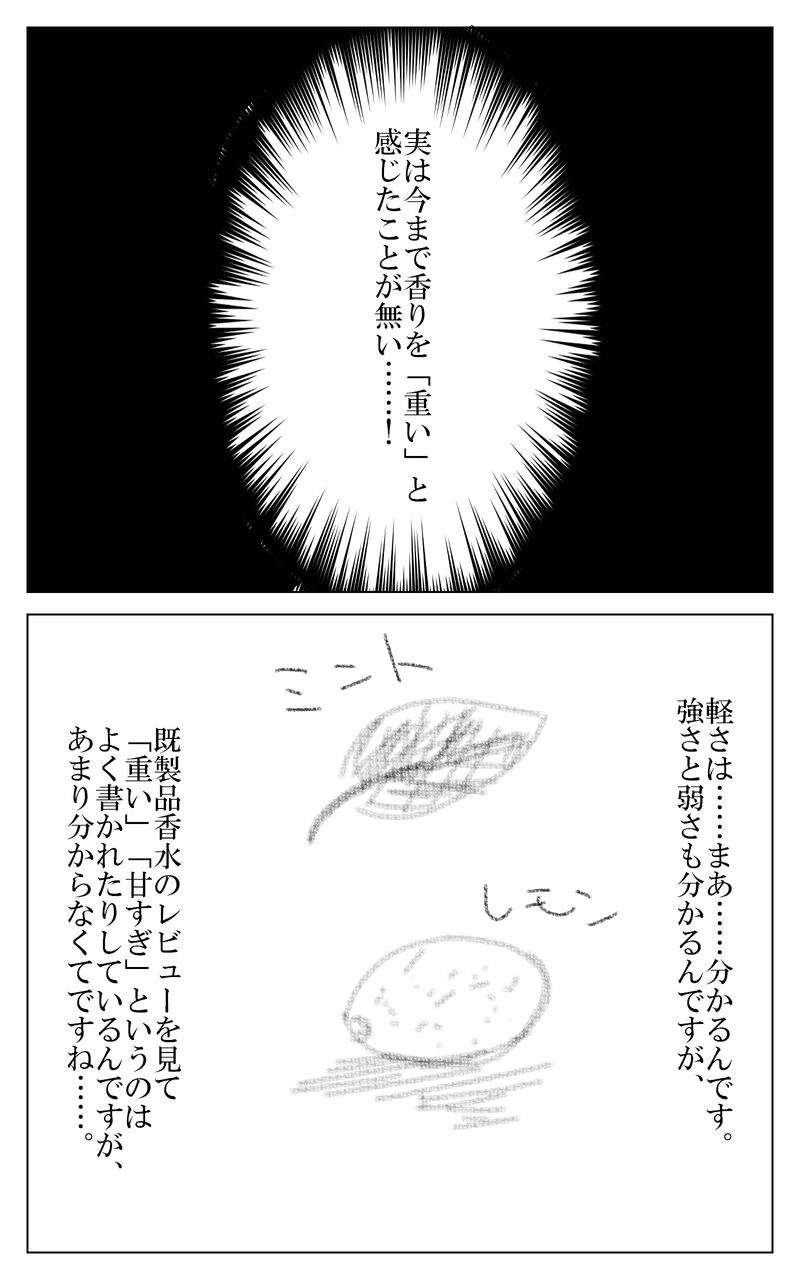 実は今まで香りを「重い」と
感じたことが無い……！
軽さは……まあ……分かるんです。
強さと弱さも分かるんですが、
ミント
レモン
既製品香水のレビューを見て
「重い」「甘すぎ」というのは
よく書かれたりしているんですが、
あまり分からなくてですね……。